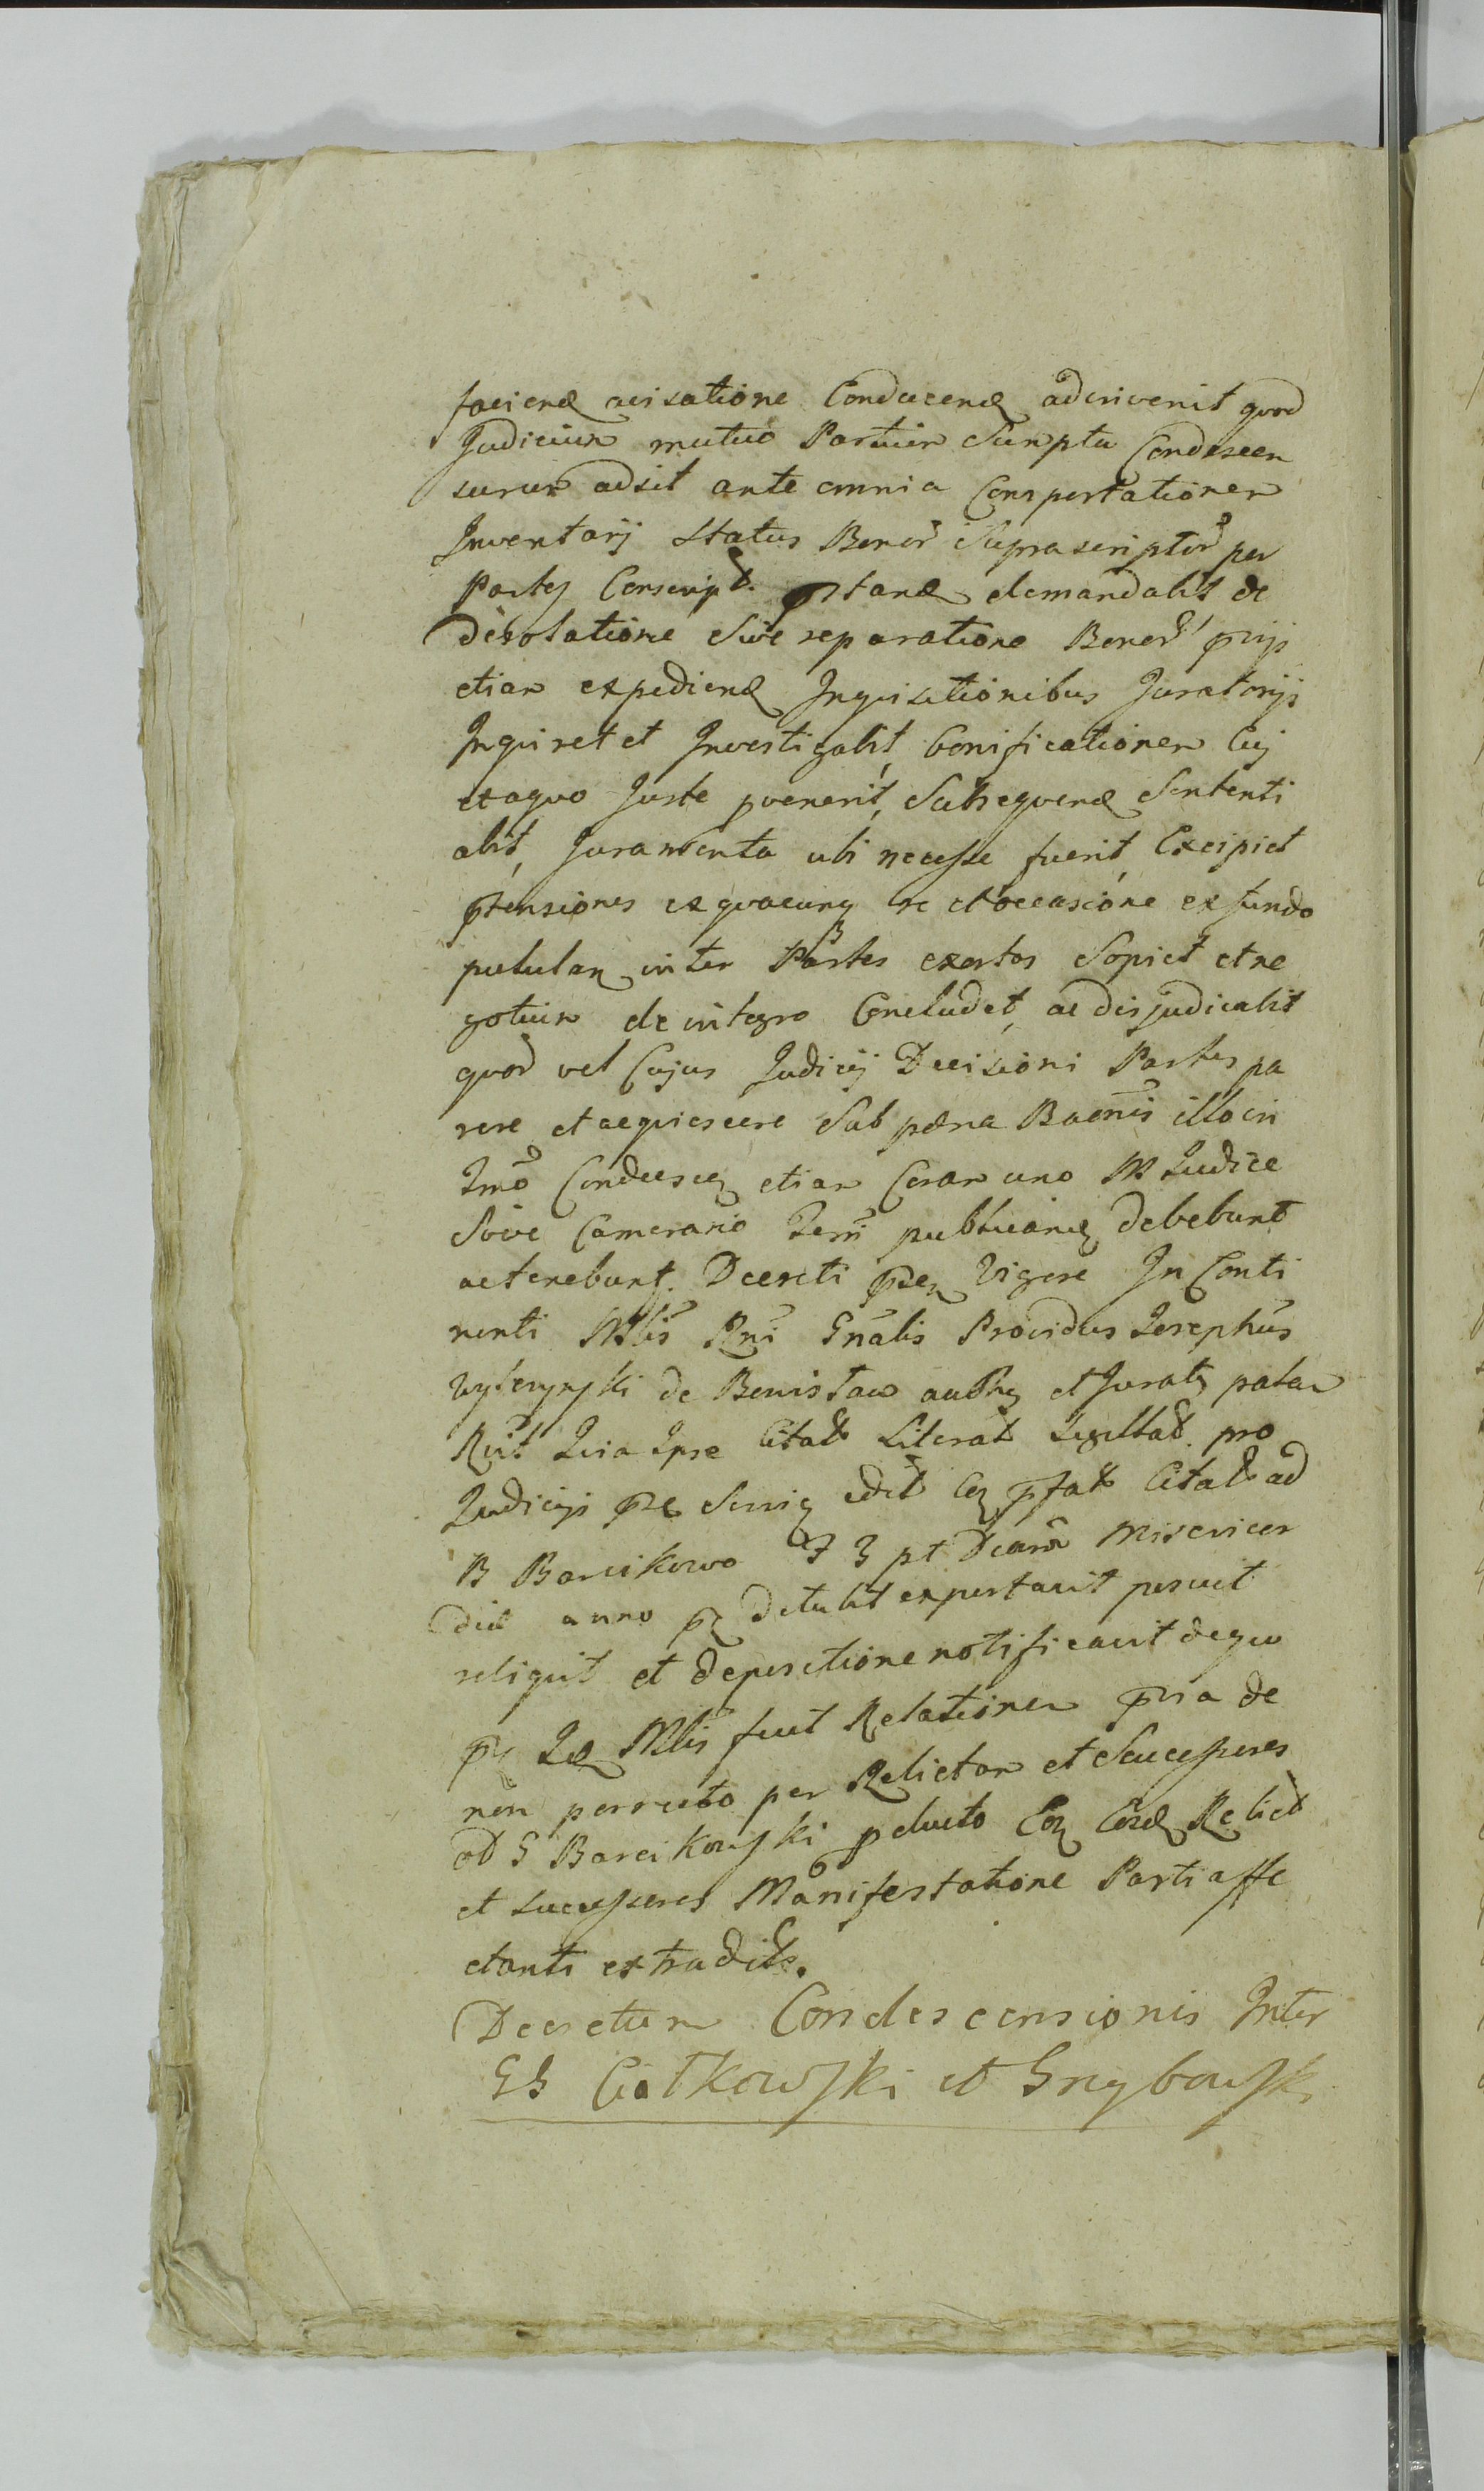 faciend avisatione Conducend advivenit quod
Judicium mutuo Partium Sumptu Condescen
surum adsit ante omnia Comportationem
Inventarij Status Bonor Suprascriptor per
Partes Conscript. pstand demandabit de
desolatione Sive reparatione Bonor prij
etiam expediend Inquisitionibus Juratorijs
Inquiret et Investigabit, bonificationem Cuj
et a quo Juste pvenerit, Subsequend Sententi
abit, Juramenta ubi necesse fuerit, Excipiet
ptensiones ex quacunq re et occasione ex fundo
pululan inter Partes exortas Sopiet et ne
gotium de integro Concludet, ac disjudicabit
quod vel Cujus Judicij Decisioni Partes pa
rere et acquiescere Sub pæna Banis illo in
Imo Condescen etiam Coram uno M Judice
Sive Camerario Terri publicand debebunt
ac tenebunt. Decreti psen Vigore In Conti
nenti Mlis Rni Gnalis Providus Josephus
de Benistaw auth et Jurat palam
Rcvit Quia Ipse Citat Literat Sigillat. pro
Judicijs ps edit Ex pfat Citat ad
B Barcikowo F 3 pt Dcam Misericor
diæ anno ps detulit exportavit posuit
reliquit et depositione notificavit de quo
ps Mlis fecit Relationem psia de
non persuto per Relictam et Successores
ol G Barcikowski pdueto Eor Cosd Relict
et Successores Manifestatione Parti affe
ctanti extradit.
Decretum Condescensionis Inter
GG Ciotkowski et Grzybowski